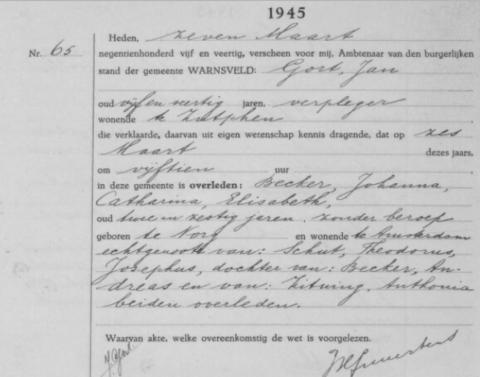 1945
Heden, zeven Maart
Nr. 65 negentienhonderd vijf en veertig, verscheen voor mij, Ambtenaar van den burgerlijken
stand der gemeente WARNSVELD: Gort, Jan
oud vijf en veertig jaren, verpleger
wonende te Zutphen
die verklaarde, daarvan uit eigen wetenschap kennis dragende, dat op zes
Maart dezes jaars,
om vijftien uur
in deze gemeente is overleden: Becker, Johanna,
Catharina, Elisabeth,
oud twee en zestig jaren, zonder beroep
geboren te Norg en wonende te Amsterdam
echtgenoote van: Schut, Theodorus,
Josephus, dochter van: Becker, An-
dreas en van: Zitwing, Anthonia
beiden overleden.
Waarvan akte, welke overeenkomstig de wet is voorgelezen.
JGort